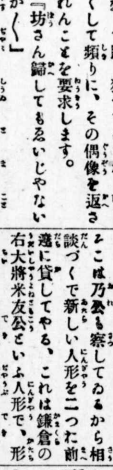 くして頻りに、その偶像を返さ
れんことを要求します。
『坊さん歸してもゑいじやない
か〱』
そこは乃公も察してゐるから相
談づくで新しい人形を二つお前
達に貸してやる、これは鎌倉の
右大將米友公といふ人形で、形